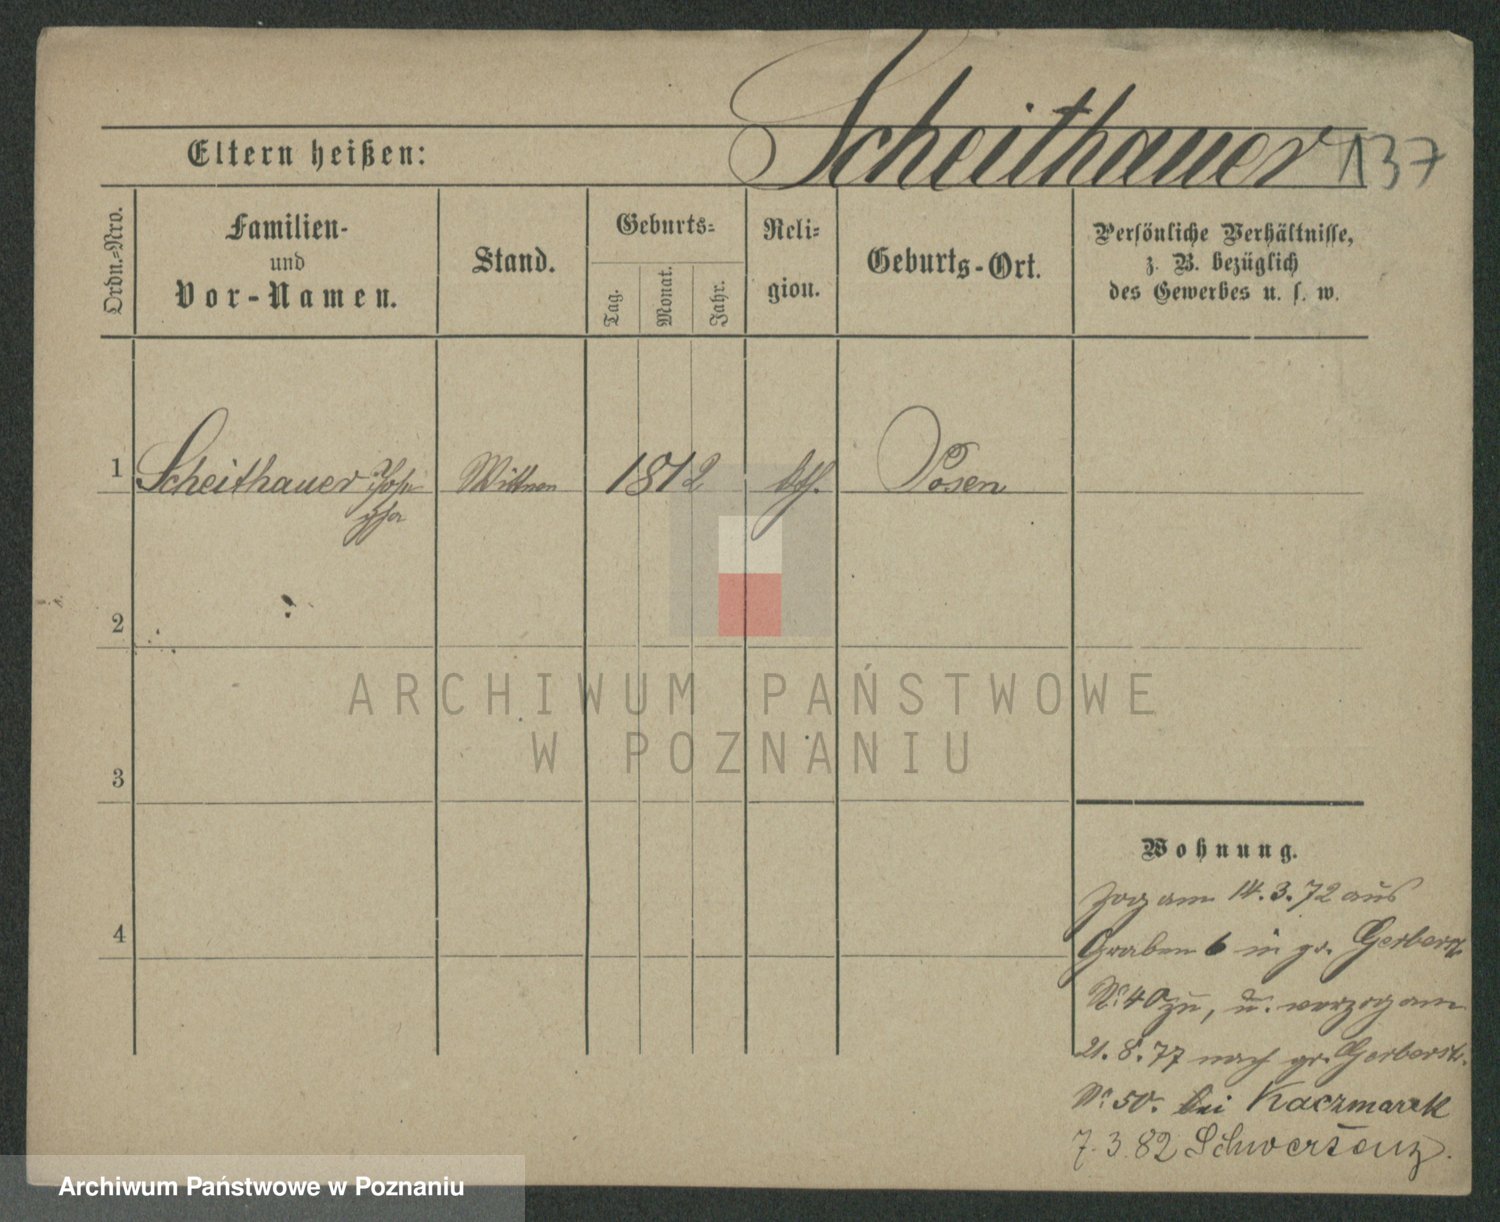 Scheithauer 137
Eltern heißen:
Ordn.-Nro.
Familien-
und
Vor-Namen.
Stand.
Geburts-
Tag.
Monat.
Jahr.
Reli-
gion.
Geburts-Ort.
Persönliche Verhältnisse,
z. B. bezüglich
des Gewerbes u. s. w.
1 Scheithauer 1812 kth. Posen
2
3
4
Wohnung.
zog am 14.3.72 aus
Graben 6 in gr. Gerberst.
No. 40 zu, u. verzog am
21.8.77 nach gr. Gerberstr.
No. 50. bei Kaczmarek
7.3.82 Schwersenz.
ARCHIWUM PAŃSTWOWE
W POZNANIU
Archiwum Państwowe w Poznaniu